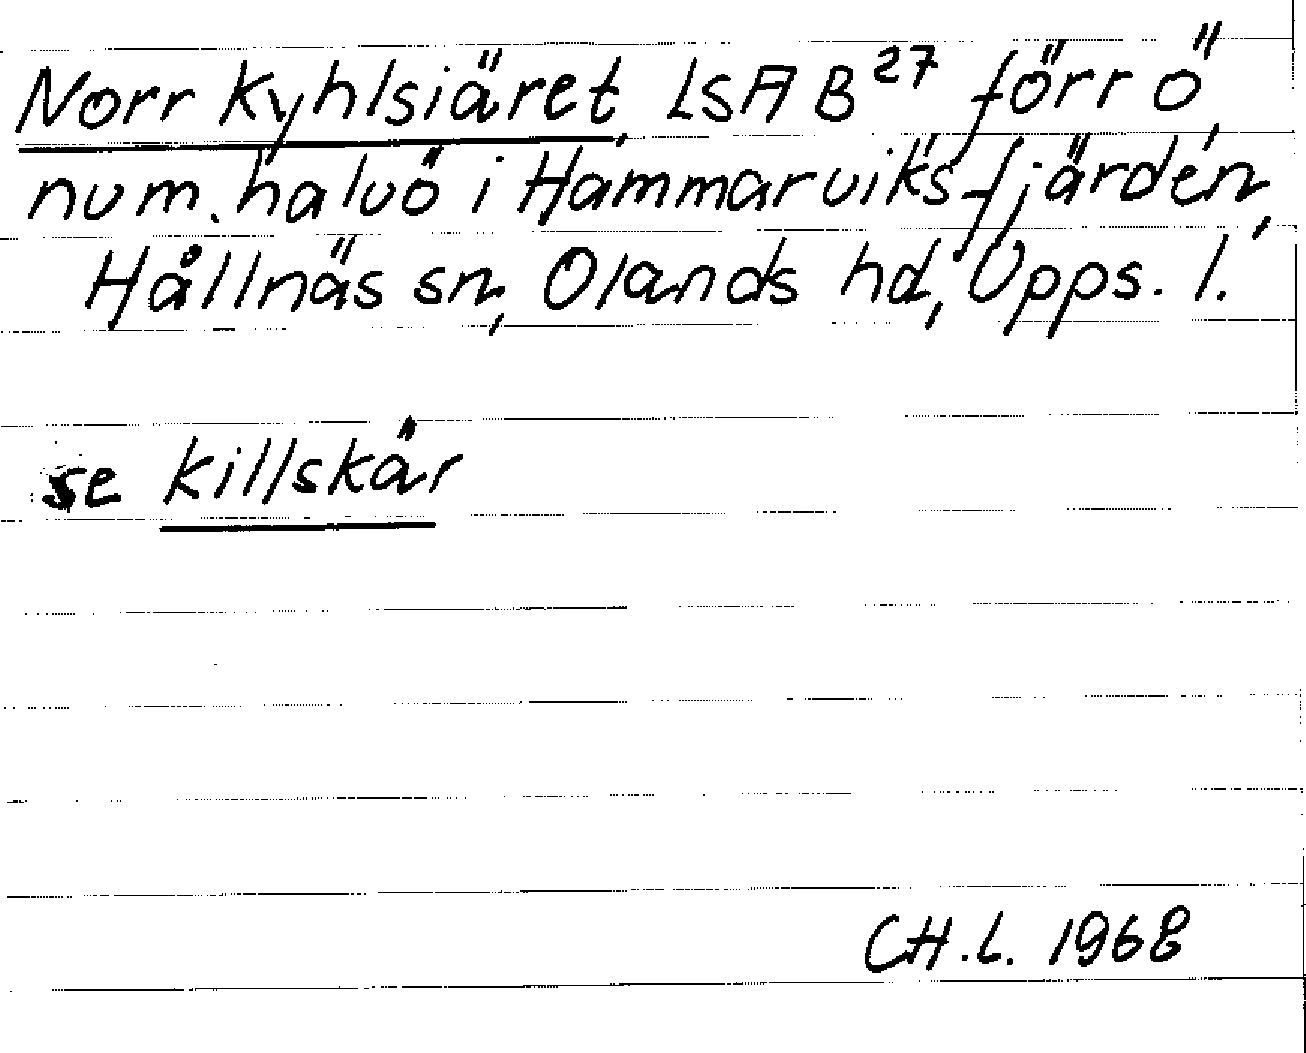 Norr Kyhlsiäret, LSA B²⁷ förr ö,
num. halvö i Hammarviksfjärden,
Hållnäs sn, Olands hd, Upps. l.
se Killskär
CH.L. 1968